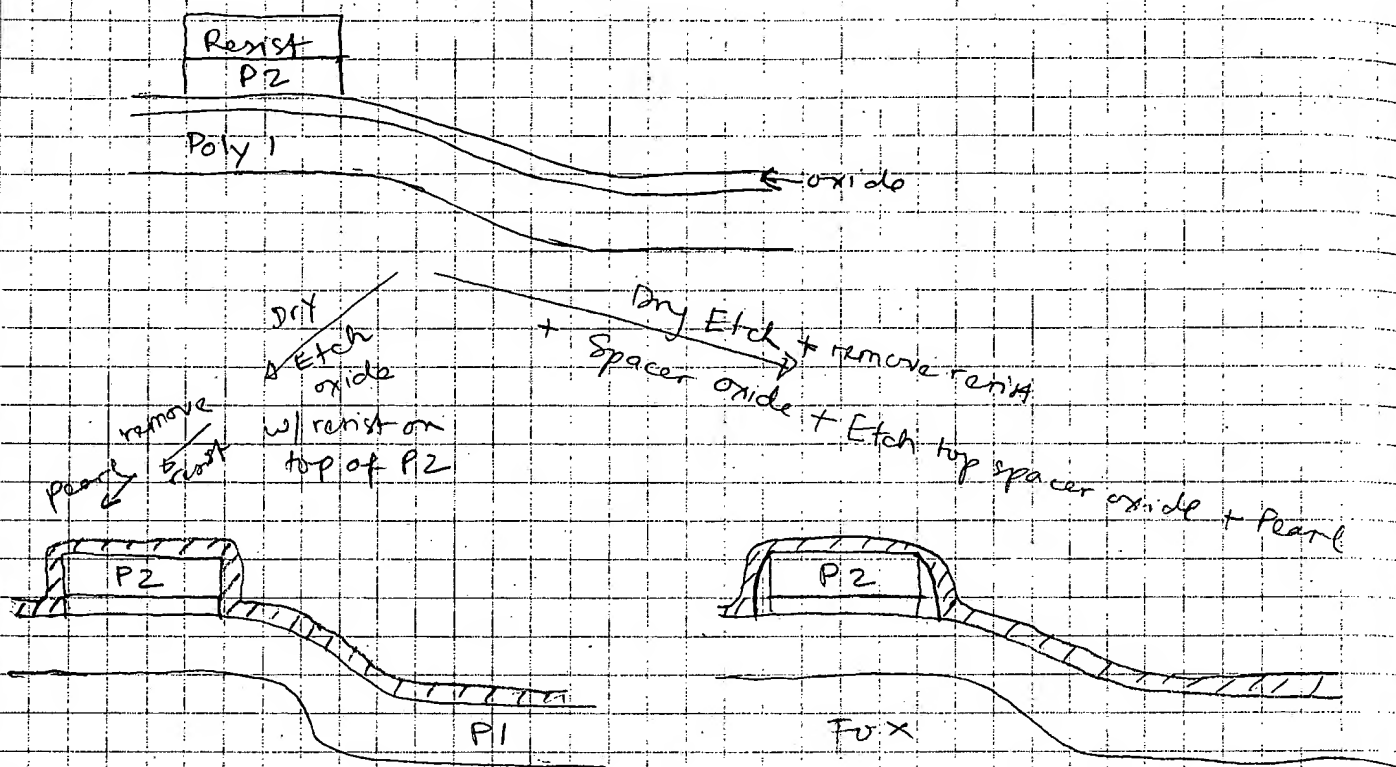 Resist
P2
Poly 1
oxide
Dry
Etch
oxide
w/ resist on
top of P2
remove
resist
pearl
Dry Etch + remove resist
+ Spacer oxide + Etch top spacer oxide + Pearl
P2
P1
P2
Fox